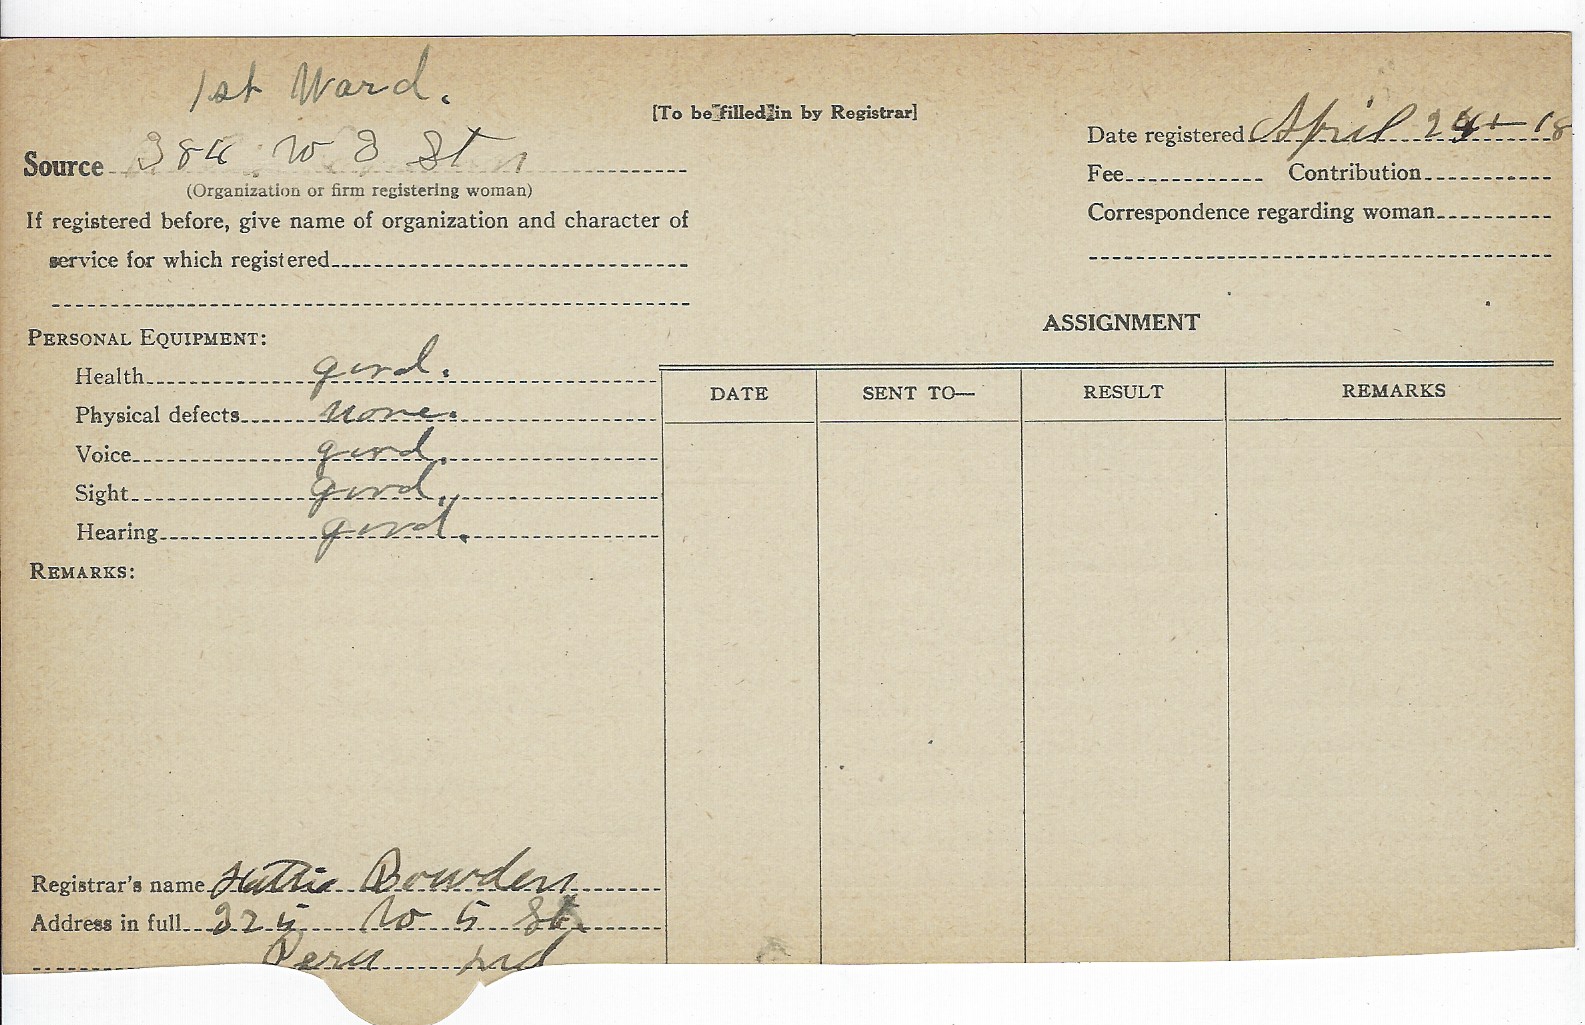 1st Ward.
[To be filled in by Registrar]
Date registered April 24 - 18
Source W 3 St
(Organization or firm registering woman)
Fee Contribution
If registered before, give name of organization and character of
Correspondence regarding woman
service for which registered
PERSONAL EQUIPMENT:
ASSIGNMENT
Health good.
Physical defects none.
Voice good.
Sight good.
Hearing good.
DATE SENT TO— RESULT REMARKS
REMARKS:
Registrar's name Hattie Bowden
Address in full 325 W 5 St.
Peru Ind